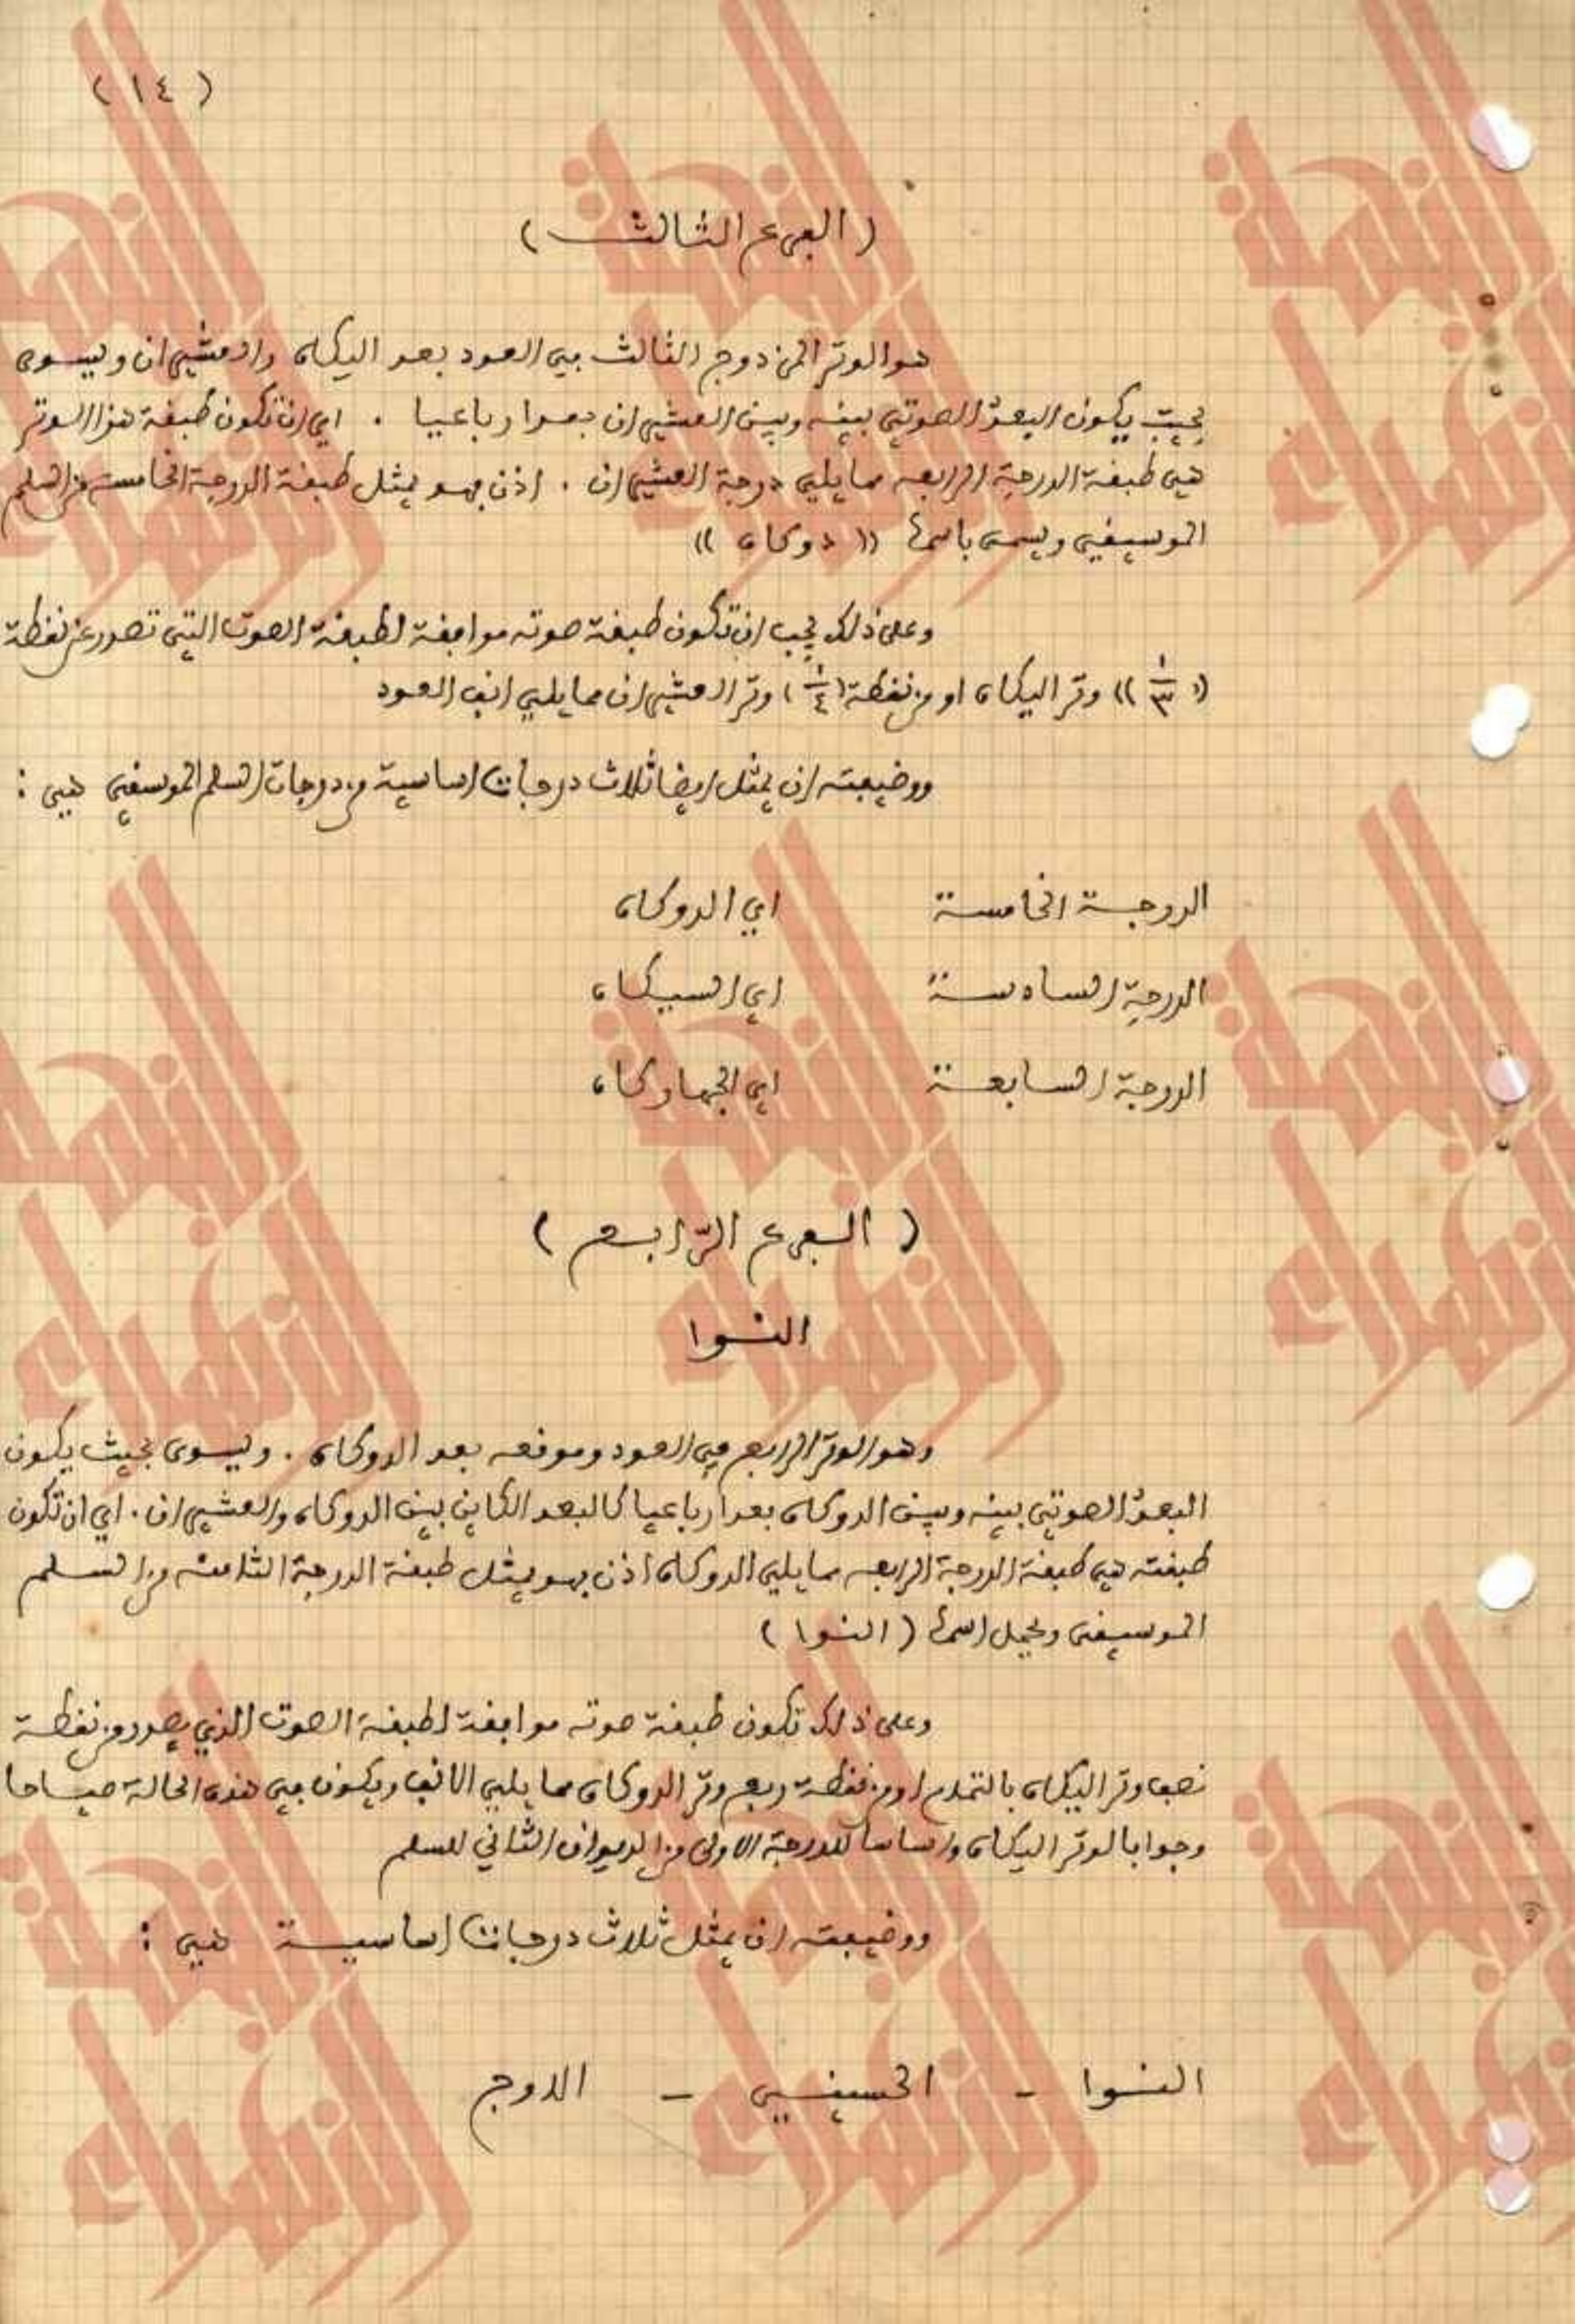 ( ١٤ )
( الفرع الثالث )
هو الوتر المزدوج الثالث في العود بعد اليكاه والعشيران ويسوى
بحيث يكون البعد الصوتي بينه وبين العشيران بعدا رباعيا . اي ان تكون طبقة هذا الوتر
هي طبقة الدرجة الرابعه مما يلي درجة العشيران . اذن فهو يمثل طبقة الدرجة الخامسة من السلم
الموسيقي ويسمى باسمها (( دوكاه ))
وعلى ذلك يجب ان تكون طبقة صوته موافقة لطبقة الصوت التي تصدر عن نقطة
(( ١/٣ )) وتر اليكاه او من نقطة ( ١/٤ ) وتر العشيران مما يلي انف العود
ووضيفته ان يمثل ايضا ثلاث درجات اساسية من درجات السلم الموسقي هي :
الدرجة الخامسة اي الدوكاه
الدرجة السادسة اي السيكاه
الدرجة السابعة اي الجهاركاه
( الفرع الرّابع )
النوا
وهو الوتر الرابع في العود وموقعه بعد الدوكاه . ويسوى بحيث يكون
البعد الصوتي بينه وبين الدوكاه بعدا رباعيا كالبعد الكاين بين الدوكاه والعشيران . اي ان تكون
طبقته هي طبقة الدرجة الرابعه مما يلي الدوكاه اذن فهو يمثل طبقة الدرجة الثامنه من السلم
الموسيقي ويحمل اسمها ( النوا )
وعلى ذلك تكون طبقة صوته موافقة لطبقة الصوت الذي يصدر من نقطة
نصف وتر اليكاه بالتمام او من نقطة ربع وتر الدوكاه مما يلي الانف ويكون في هذه الحالة صياحا
وجوابا لوتر اليكاه واساسا للدرجة الاولى من الديوان الثاني للسلم
ووضيفته ان يمثل ثلاث درجات اساسية هي :
النوا - الحسيني - الاوج
النجمة الزهراء